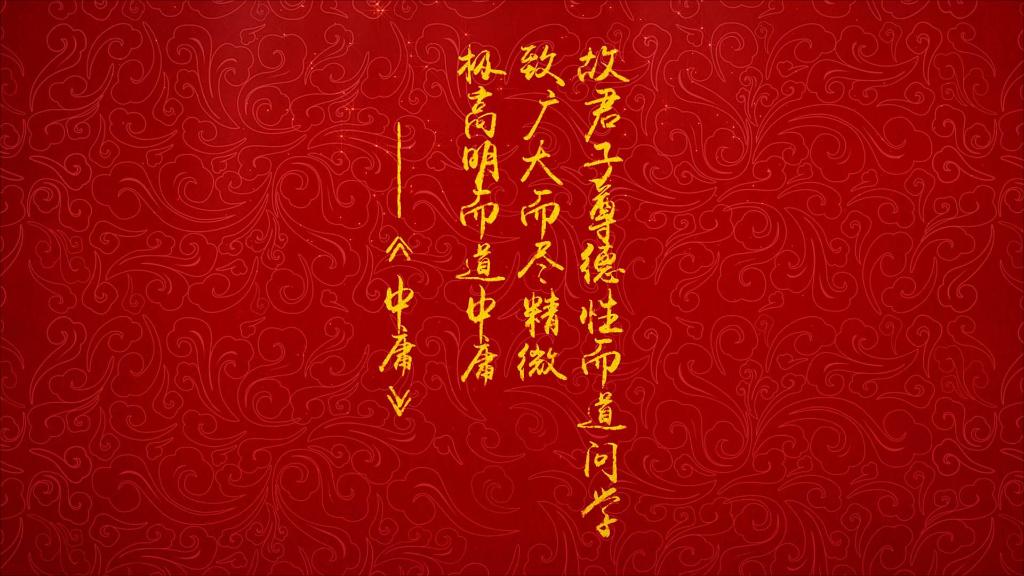 故君子尊德性而道问学
致广大而尽精微
极高明而道中庸
——《中庸》